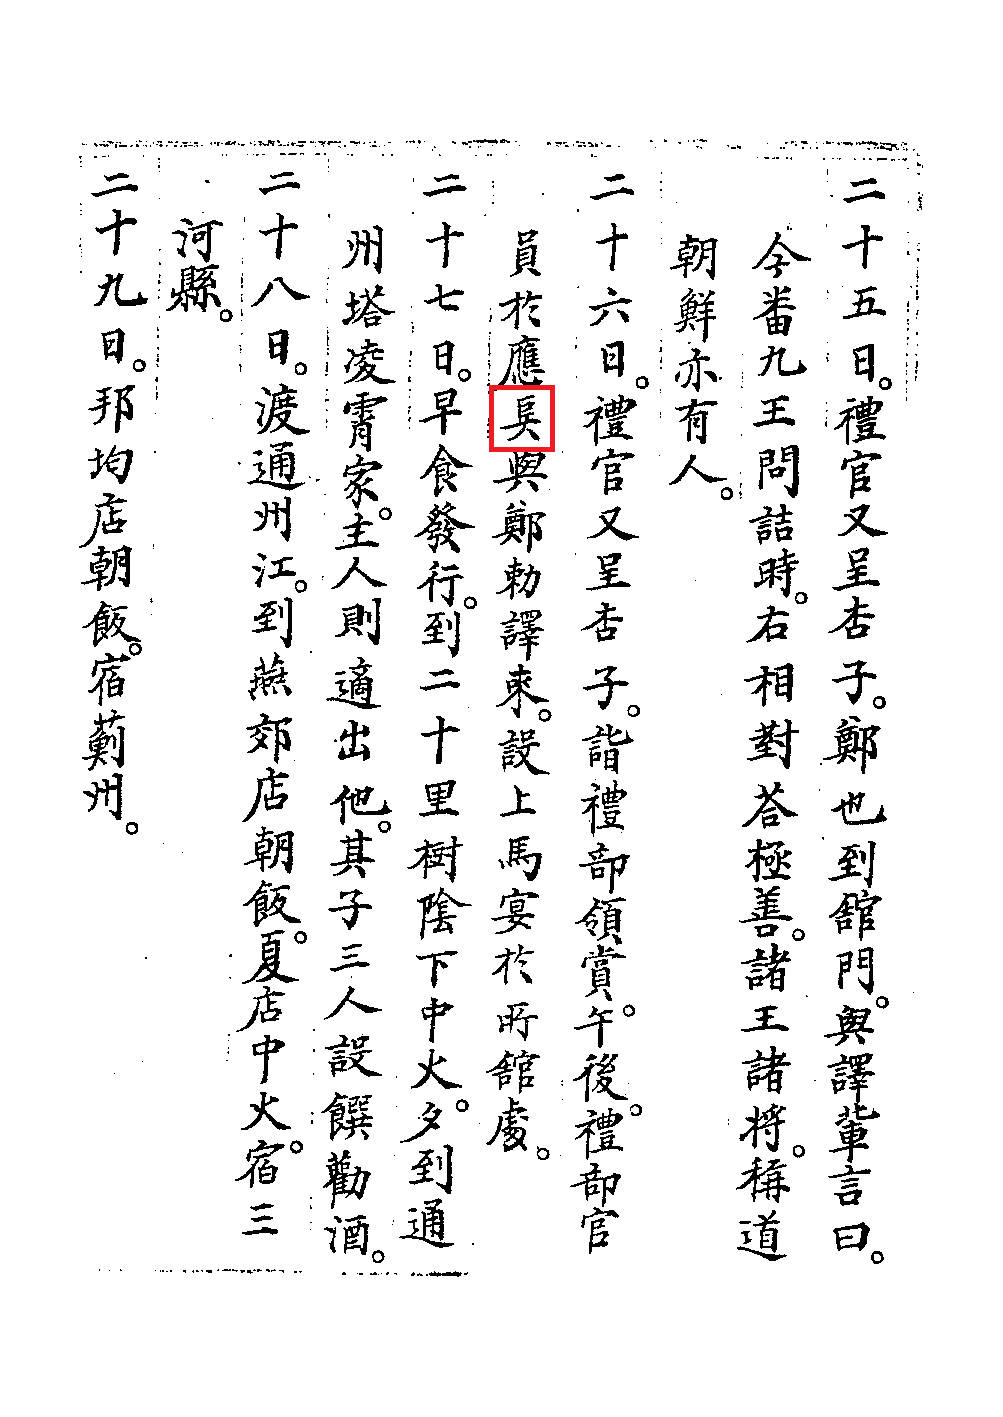 二十五日。禮官又呈杏子。鄭也到舘門。與譯輩言曰。
今番九王問詰時。右相對荅極善。諸王諸將。稱道
朝鮮亦有人。
二十六日。禮官又呈杏子。詣禮部領賞。午後。禮部官
員於應吳與鄭勅譯來。設上馬宴於所舘處。
二十七日。早食發行。到二十里樹陰下中火。夕到通
州塔凌霄家。主人則適出他。其子三人設饌勸酒。
二十八日。渡通州江。到燕郊店朝飯。夏店中火。宿三
河縣。
二十九日。邦均店朝飯。宿薊州。